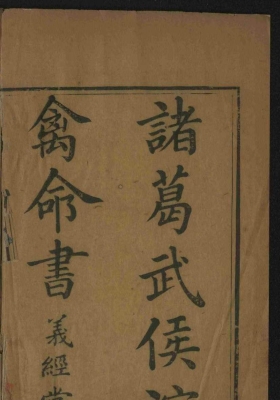 諸葛武侯演
禽命書
義經堂